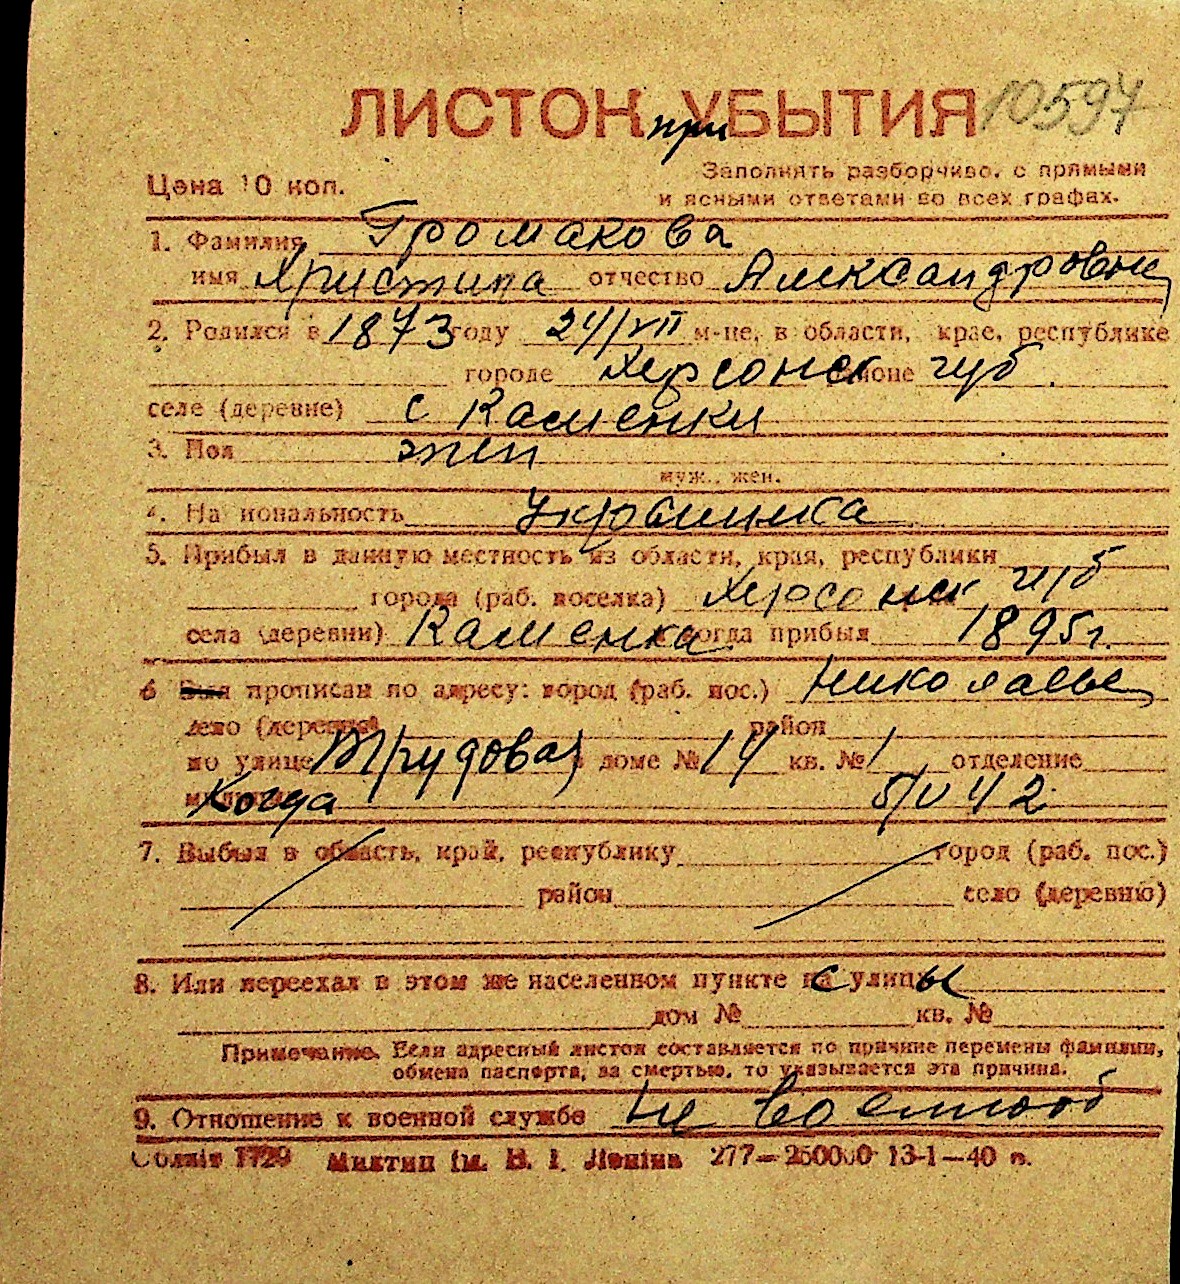 ЛИСТОК при УБЫТИЯ 10597
Цена 10 коп.
Заполнять разборчиво, с прямыми
и ясными ответами во всех графах.
1. Фамилия Громакова
имя Христина отчество Александровна
2. Родился в 1873 году 24/VII м-це, в области, крае, республике
городе Херсонск районе губ.
селе (деревне) с Каменки
3. Пол жен
муж., жен.
4. Национальность Украинка
5. Прибыл в данную местность из области, края, республики
города (раб. поселка) Херсонск губ
села (деревни) Каменка когда прибыл 1895г.
6 Был прописан по адресу: город (раб. пос.) Николаеве
село (деревня) район
по улице Трудовая доме № 14 кв. № 1 отделение
Когда 5/V 42
7. Выбыл в область, край, республику город (раб. пос.)
район село (деревню)
8. Или переехал в этом же населенном пункте с улицы
дом № кв. №
Примечание. Если адресный листок составляется по причине перемены фамилии,
обмена паспорта, за смертью, то указывается эта причина.
9. Отношение к военной службе не военнооб
Облліт 1729 Миктип ім. В. І. Леніна 277—250000 13-1—40 р.